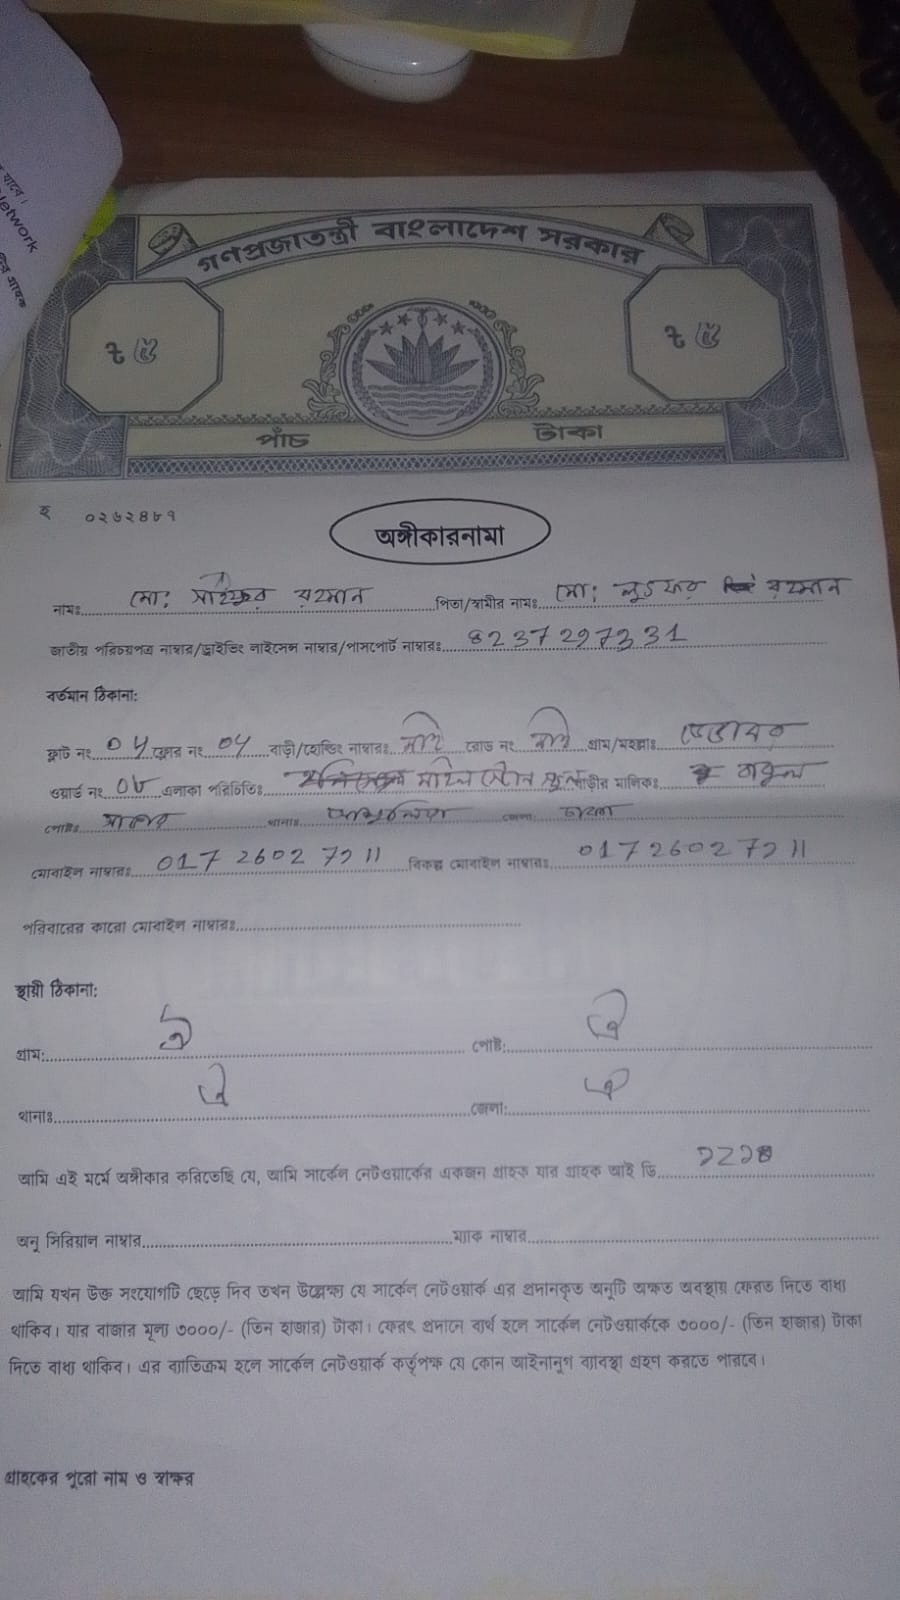 যাবে।
Network
গ্রাহক
গণপ্রজাতন্ত্রী বাংলাদেশ সরকার
৳ ৫ ৳ ৫
পাঁচ টাকা
হ ০২৬২৪৮৭
অঙ্গীকারনামা
নামঃ মো: সাইফুর রহমান পিতা/স্বামীর নাম: মো: লুৎফর রহমান
জাতীয় পরিচয়পত্র নাম্বার/ড্রাইভিং লাইসেন্স নাম্বার/পাসপোর্ট নাম্বারঃ 8237297331
বর্তমান ঠিকানা:
ফ্লাট নং ০৫ ফ্লোর নং ০৫ বাড়ী/হোল্ডিং নাম্বারঃ নাই রোড নং নাই গ্রাম/মহল্লাঃ
ওয়ার্ড নং ০৮ এলাকা পরিচিতিঃ মাইল স্টোন স্কুল বাড়ীর মালিক:
পোষ্টঃ সাভার থানাঃ আশুলিয়া জেলা: ঢাকা
মোবাইল নাম্বারঃ 01726027211 বিকল্প মোবাইল নাম্বারঃ 01726027211
পরিবারের কারো মোবাইল নাম্বারঃ
স্থায়ী ঠিকানা:
গ্রাম: ঐ পোষ্ট: ঐ
থানাঃ ঐ জেলা: ঐ
আমি এই মর্মে অঙ্গীকার করিতেছি যে, আমি সার্কেল নেটওয়ার্কের একজন গ্রাহক যার গ্রাহক আই ডি
অনু সিরিয়াল নাম্বার ম্যাক নাম্বার
আমি যখন উক্ত সংযোগটি ছেড়ে দিব তখন উল্লেক্ষ্য যে সার্কেল নেটওয়ার্ক এর প্রদানকৃত অনুটি অক্ষত অবস্থায় ফেরত দিতে বাধ্য
থাকিব। যার বাজার মূল্য ৩০০০/- (তিন হাজার) টাকা। ফেরৎ প্রদানে ব্যর্থ হলে সার্কেল নেটওয়ার্ককে ৩০০০/- (তিন হাজার) টাকা
দিতে বাধ্য থাকিব। এর ব্যাতিক্রম হলে সার্কেল নেটওয়ার্ক কর্তৃপক্ষ যে কোন আইনানুগ ব্যাবস্থা গ্রহণ করতে পারবে।
গ্রাহকের পুরো নাম ও স্বাক্ষর